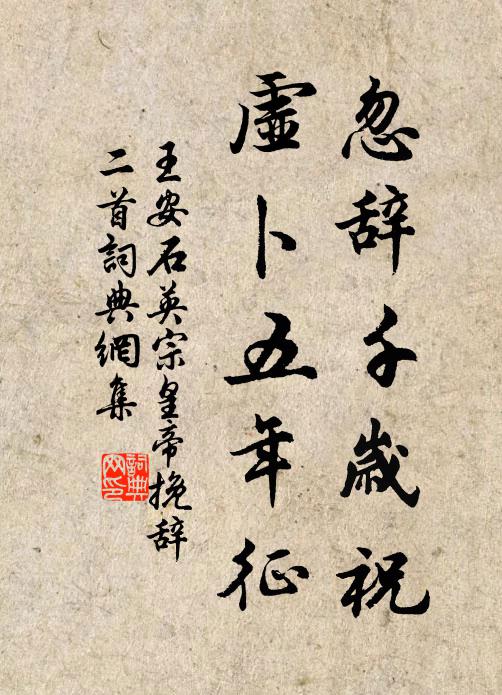 忽辞千歲祝
虛卜五年征
王安石英宗皇帝挽辞
二首詞典網集
詞典
网印